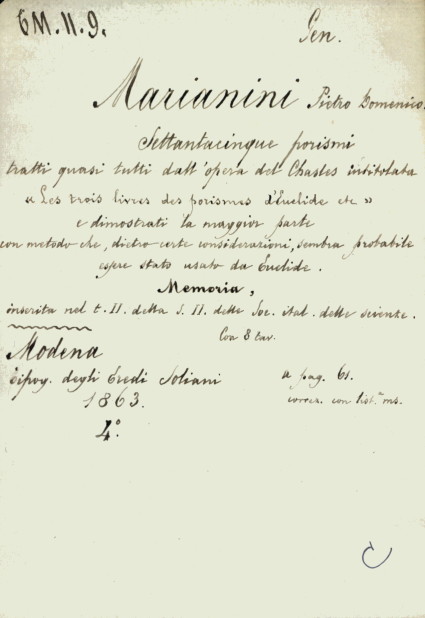 6M. 11. 9.
Gen.
Marianini Pietro Domenico.
Settantacinque porismi
tratti quasi tutti dall'opera del Chasles intitolata
« Les trois livres des porismes d'Euclide etc »
e dimostrati la maggior parte
con metodo che, dietro certe considerazioni, sembra probabile
essere stato usato da Euclide.
Memoria,
inserita nel t. II. della S. II. delle Soc. ital. delle scienze.
Con 8 tav.
Modena
tipog. degli Eredi Soliani
1863.
4º.
a pag. 61.
correz. con ms.